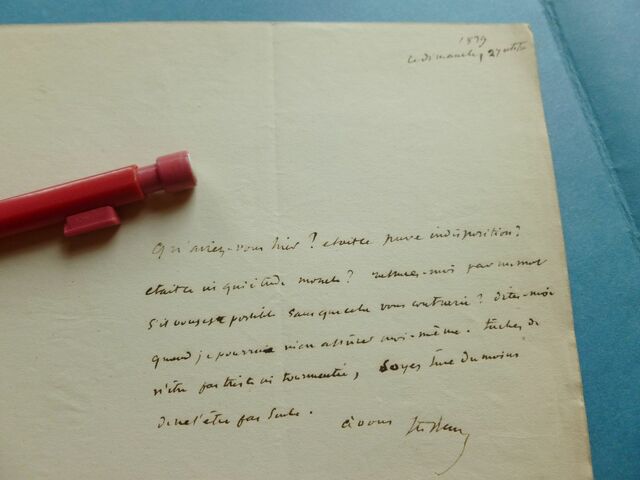 1839
le dimanche, 27 octobre
Qu'aviez-vous hier ? etaitce pure indisposition ?
etaitce inquiétude morale ? rassurez-moi par un mot
s'il vous est possible sans que cela vous contrarie ? dites-moi
quand je pourrai m'en assurer moi-même. tâchez de
n'être pas triste ni tourmentée, soyez sure du moins
de ne l'être pas seule.
à vous